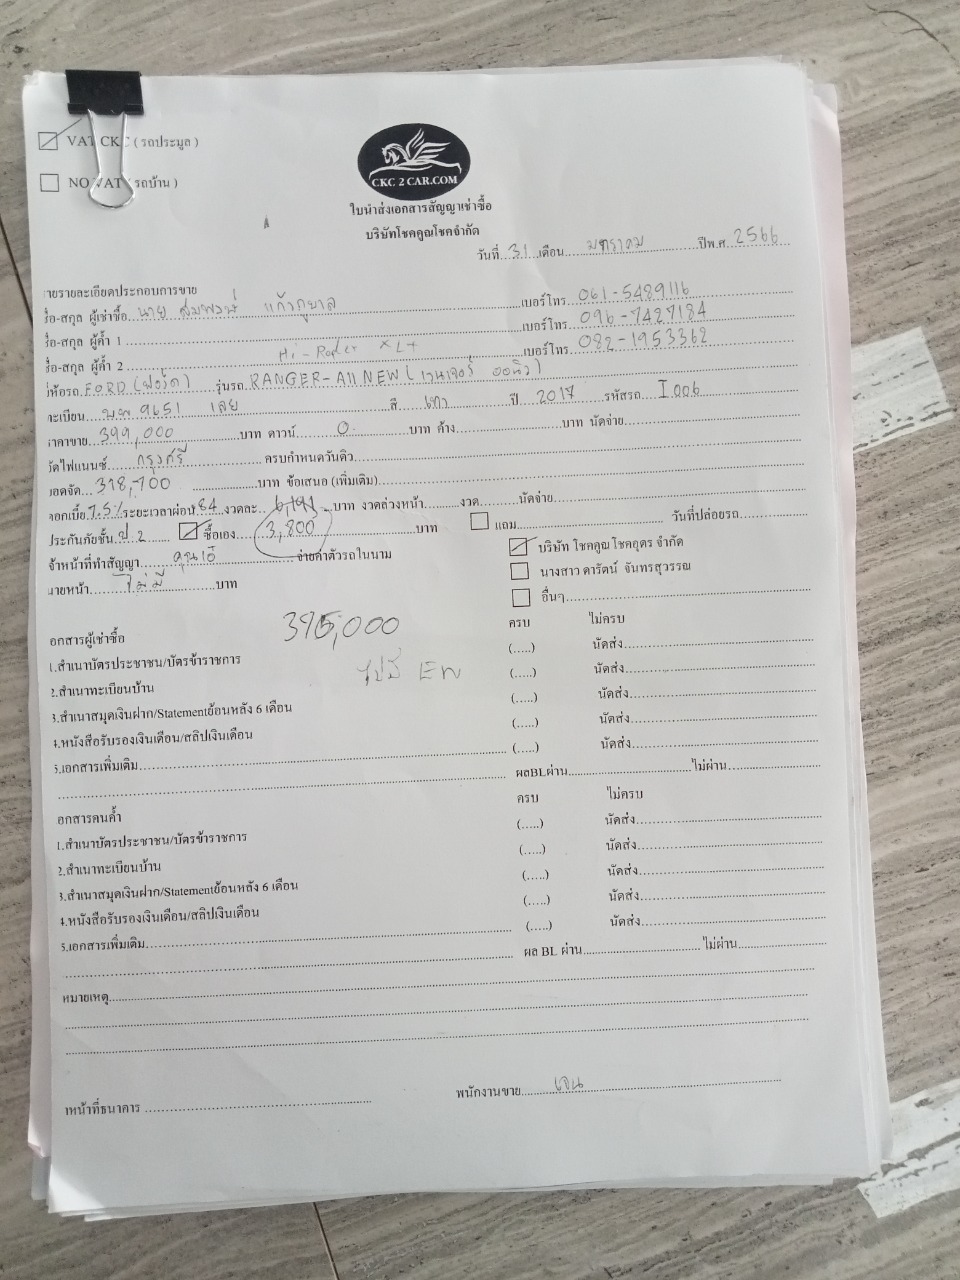 VAT CKC ( รถประมูล )
NO VAT ( รถบ้าน )
CKC 2 CAR.COM
ใบนำส่งเอกสารสัญญาเช่าซื้อ
บริษัทโชคคูณโชคจำกัด
วันที่ 31 เดือน มกราคม ปีพ.ศ. 2566
รายละเอียดประกอบการขาย
ชื่อ-สกุล ผู้เช่าซื้อ นาย สมพงษ์ เบอร์โทร 061-5489116
ชื่อ-สกุล ผู้ค้ำ 1 เบอร์โทร 096-7427184
ชื่อ-สกุล ผู้ค้ำ 2 เบอร์โทร 082-1953362
ยี่ห้อรถ FORD (ฟอร์ด) รุ่นรถ RANGER-All NEW (
ทะเบียน 9651 เลย สี เทา ปี 2017 รหัสรถ I006
ราคาขาย 399,000 บาท ดาวน์ 0 บาท ค้าง บาท นัดจ่าย
จัดไฟแนนซ์ กรุงศรี ครบกำหนดวันคิว
ยอดจัด 318,700 บาท ข้อเสนอ (เพิ่มเติม)
ดอกเบี้ย 7.5% ระยะเวลาผ่อน 84 งวดละ บาท งวดล่วงหน้า งวด นัดจ่าย
ประกันภัยชั้น ป.2 ซื้อเอง 3,800 บาท แถม วันที่ปล่อยรถ
เจ้าหน้าที่ทำสัญญา จ่ายค่าตัวรถในนาม บริษัท โชคคูณโชคอุดร จำกัด
นายหน้า ไม่มี บาท นางสาว ดารัตน์ จันทรสุวรรณ
อื่นๆ
เอกสารผู้เช่าซื้อ ครบ ไม่ครบ
1.สำเนาบัตรประชาชน/บัตรข้าราชการ (.....) นัดส่ง
2.สำเนาทะเบียนบ้าน (.....) นัดส่ง
3.สำเนาสมุดเงินฝาก/Statementย้อนหลัง 6 เดือน (.....) นัดส่ง
4.หนังสือรับรองเงินเดือน/สลิปเงินเดือน (.....) นัดส่ง
5.เอกสารเพิ่มเติม (.....) นัดส่ง
ผลBLผ่าน ไม่ผ่าน
เอกสารคนค้ำ ครบ ไม่ครบ
1.สำเนาบัตรประชาชน/บัตรข้าราชการ (.....) นัดส่ง
2.สำเนาทะเบียนบ้าน (.....) นัดส่ง
3.สำเนาสมุดเงินฝาก/Statementย้อนหลัง 6 เดือน (.....) นัดส่ง
4.หนังสือรับรองเงินเดือน/สลิปเงินเดือน (.....) นัดส่ง
5.เอกสารเพิ่มเติม (.....) นัดส่ง
ผล BL ผ่าน ไม่ผ่าน
หมายเหตุ
เจ้าหน้าที่ธนาคาร พนักงานขาย เจน